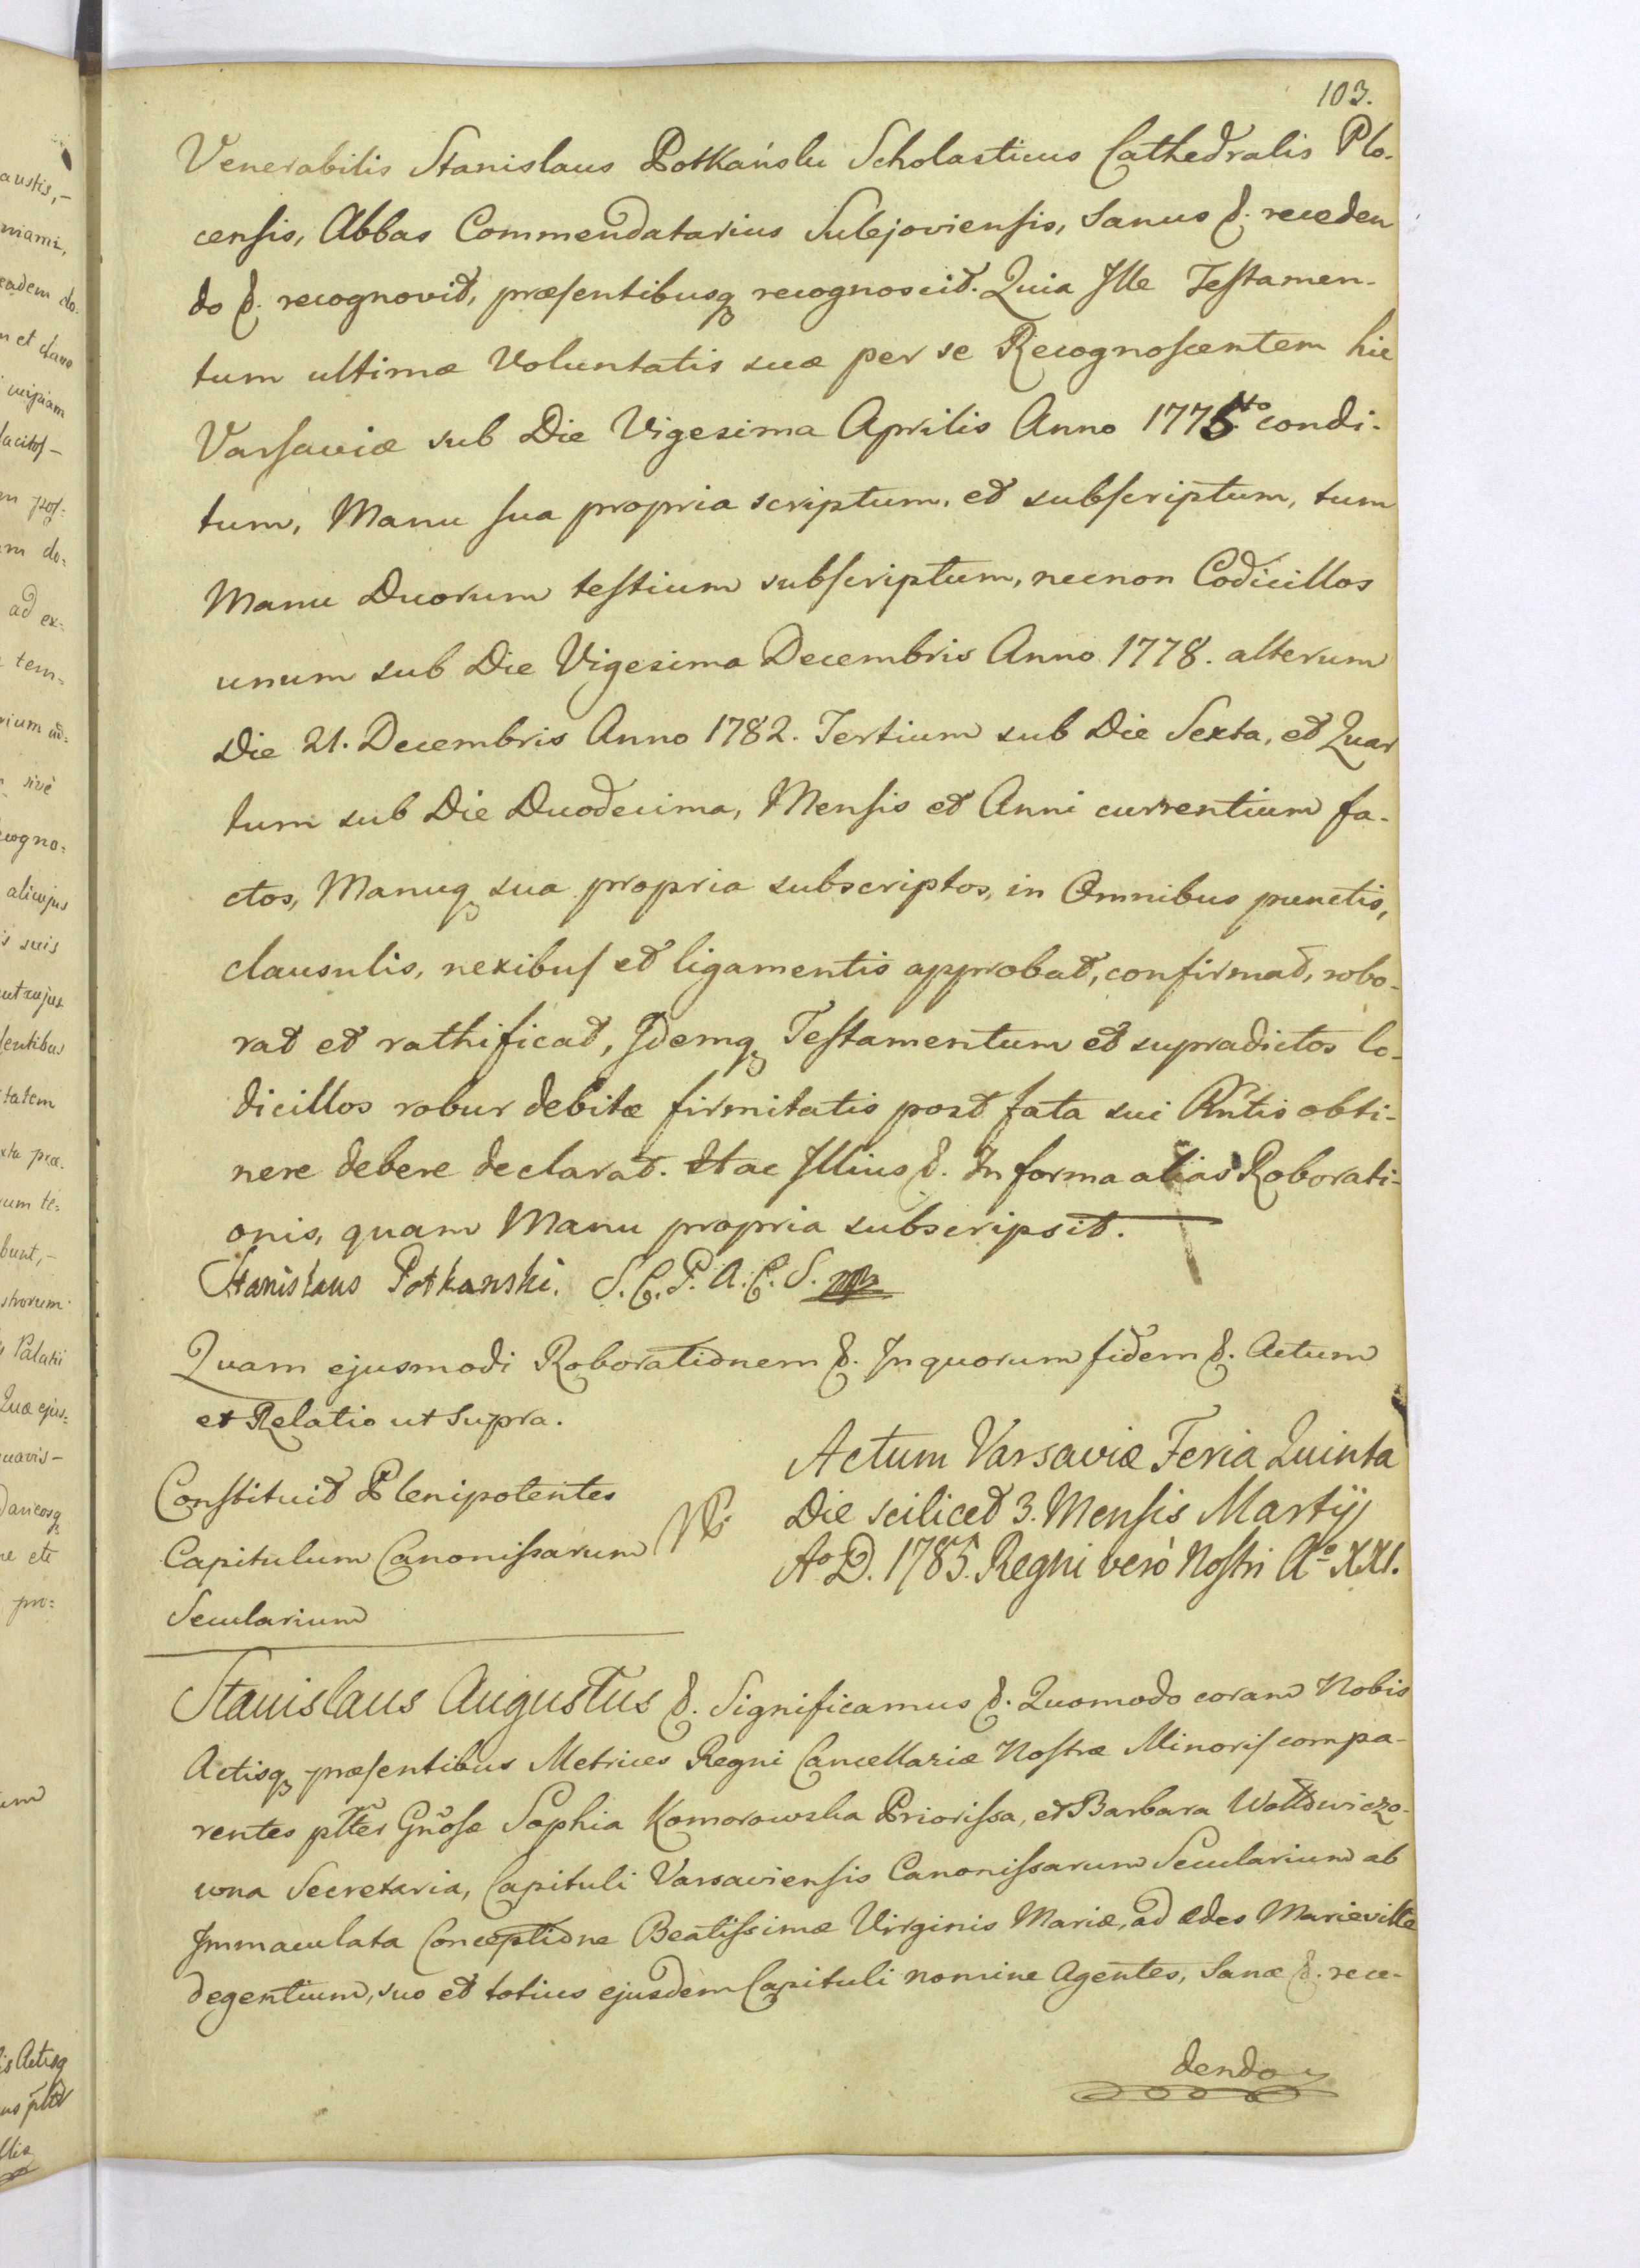 103.
Venerabilis Stanislaus Potkański Scholasticus Cathedralis Plo-
censis, Abbas Commendatarius Sulejoviensis, Sanus &. receden
do &. recognovit, præsentibusq recognoscit. Quia Ille Testamen-
tum ultimæ Voluntatis suæ per se Recognoscentem hic
Varsaviæ sub Die Vigesima Aprilis Anno 1776to condi-
tum, Manu sua propria scriptum, et subscriptum, tum
Manu Duorum testium subscriptum, necnon Codicillos
unum sub Die Vigesima Decembris Anno 1778. alterum
Die 21. Decembris Anno 1782. Tertium sub Die Sexta, et Quar
tum sub Die Duodecima, Mensis et Anni currentium fa-
ctos, Manuq sua propria subscriptos, in Omnibus punctis,
clausulis, nexibus et ligamentis approbat, confirmat, robo-
rat et rathificat, Idemq Testamentum et supradictos Co-
dicillos robur debitæ firmitatis post fata sui Rntis obti-
nere debere declarat. Hac Illius &. In forma alias Roborati-
onis, quam Manu propria subscripsit.
Stanislaus Potkanski. S. C. P. A. C. S. mp
Quam ejusmodi Roborationem &. In quorum fidem &. Actum
et Relatio ut Supra.
Actum Varsaviæ Feria Quinta
Die scilicet 3. Mensis Martij
Ao D. 1785. Regni verò Nostri Ao XXI.
Constituit Plenipotentes
Capitulum Canonissarum
Secularium
Stanislaus Augustus &. Significamus &. Quomodo coram Nobis
Actisq præsentibus Metrices Regni Cancellariæ Nostræ Minoris compa-
rentes plter Gnosæ Sophia Komorowska Priorissa, et Barbara
wna Secretaria, Capituli Varsaviensis Canonissarum Secularium ab
Immaculata Conceptione Beatissimæ Virginis Mariæ, ad ædes Marieville
degentium, suo et totius ejusdem Capituli nomine Agentes, Sanæ &. rece-
dendo